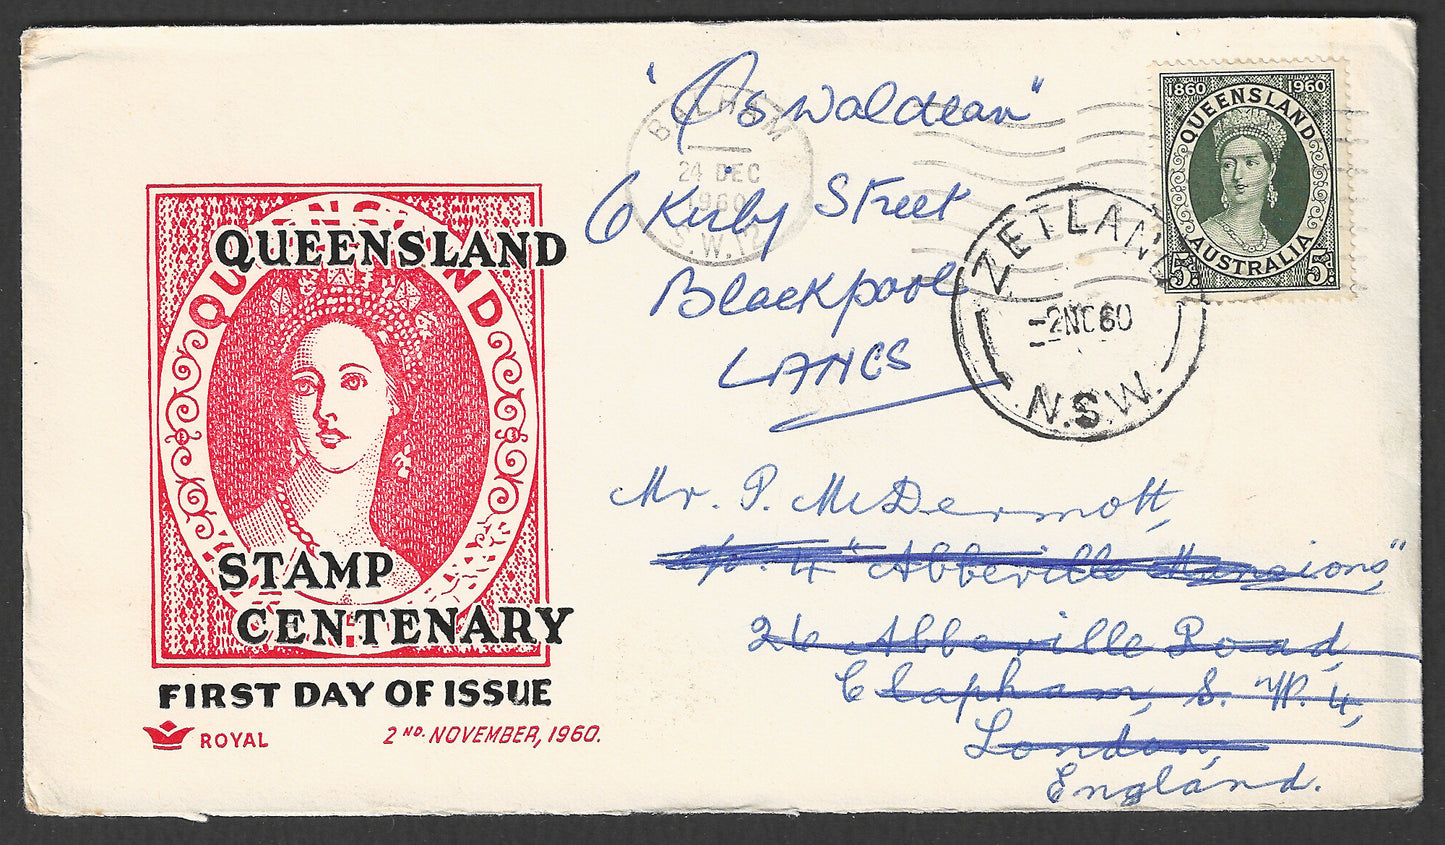 "Oswaldean"
6 Kirby Street
Blackpool
LANCS
BALHAM
24 DEC
1960
S.W.12
1860 1960
QUEENSLAND
AUSTRALIA
5D. 5D.
ZETLAND
-2NO60
N.S.W.
QUEENSLAND
QUEENSLAND
STAMP
CENTENARY
FIRST DAY OF ISSUE
ROYAL 2ND. NOVEMBER, 1960.
Mr. P. McDermott,
4 "Abbeville Mansions"
26 Abbeville Road,
Clapham, S.W.4,
London,
England.